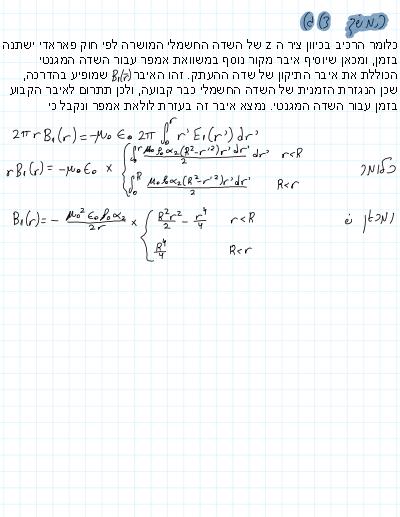 המשך
כלומר הרכיב בכיוון ציר ה z של השדה החשמלי המושרה לפי חוק פאראדיי ישתנה
בזמן, ומכאן שיוסיף איבר מקור נוסף במשוואת אמפר עבור השדה המגנטי
הכוללת את איבר התיקון של שדה ההעתק. זהו האיבר B₁(r) שמופיע בהדרכה,
שכן הנגזרת הזמנית של השדה החשמלי כבר קבועה, ולכן תתרום לאיבר הקבוע
בזמן עבור השדה המגנטי. נמצא איבר זה בעזרת לולאת אמפר ונקבל כי
2πr B₁(r) = -μ₀ ϵ₀ 2π ∫₀^r r' E₁(r') dr'
כלומר rB₁(r) = -μ₀ϵ₀ × { ∫₀^r μ₀ρ₀α₂(R²-r'²)r'dr'/2 dr' r<R
∫₀^R μ₀ρ₀α₂(R²-r'²)r'dr'/2 R<r
ומכאן ש B₁(r) = - μ₀²ϵ₀ρ₀α₂/2r × { R²r²/2 - r⁴/4 r<R
R⁴/4 R<r